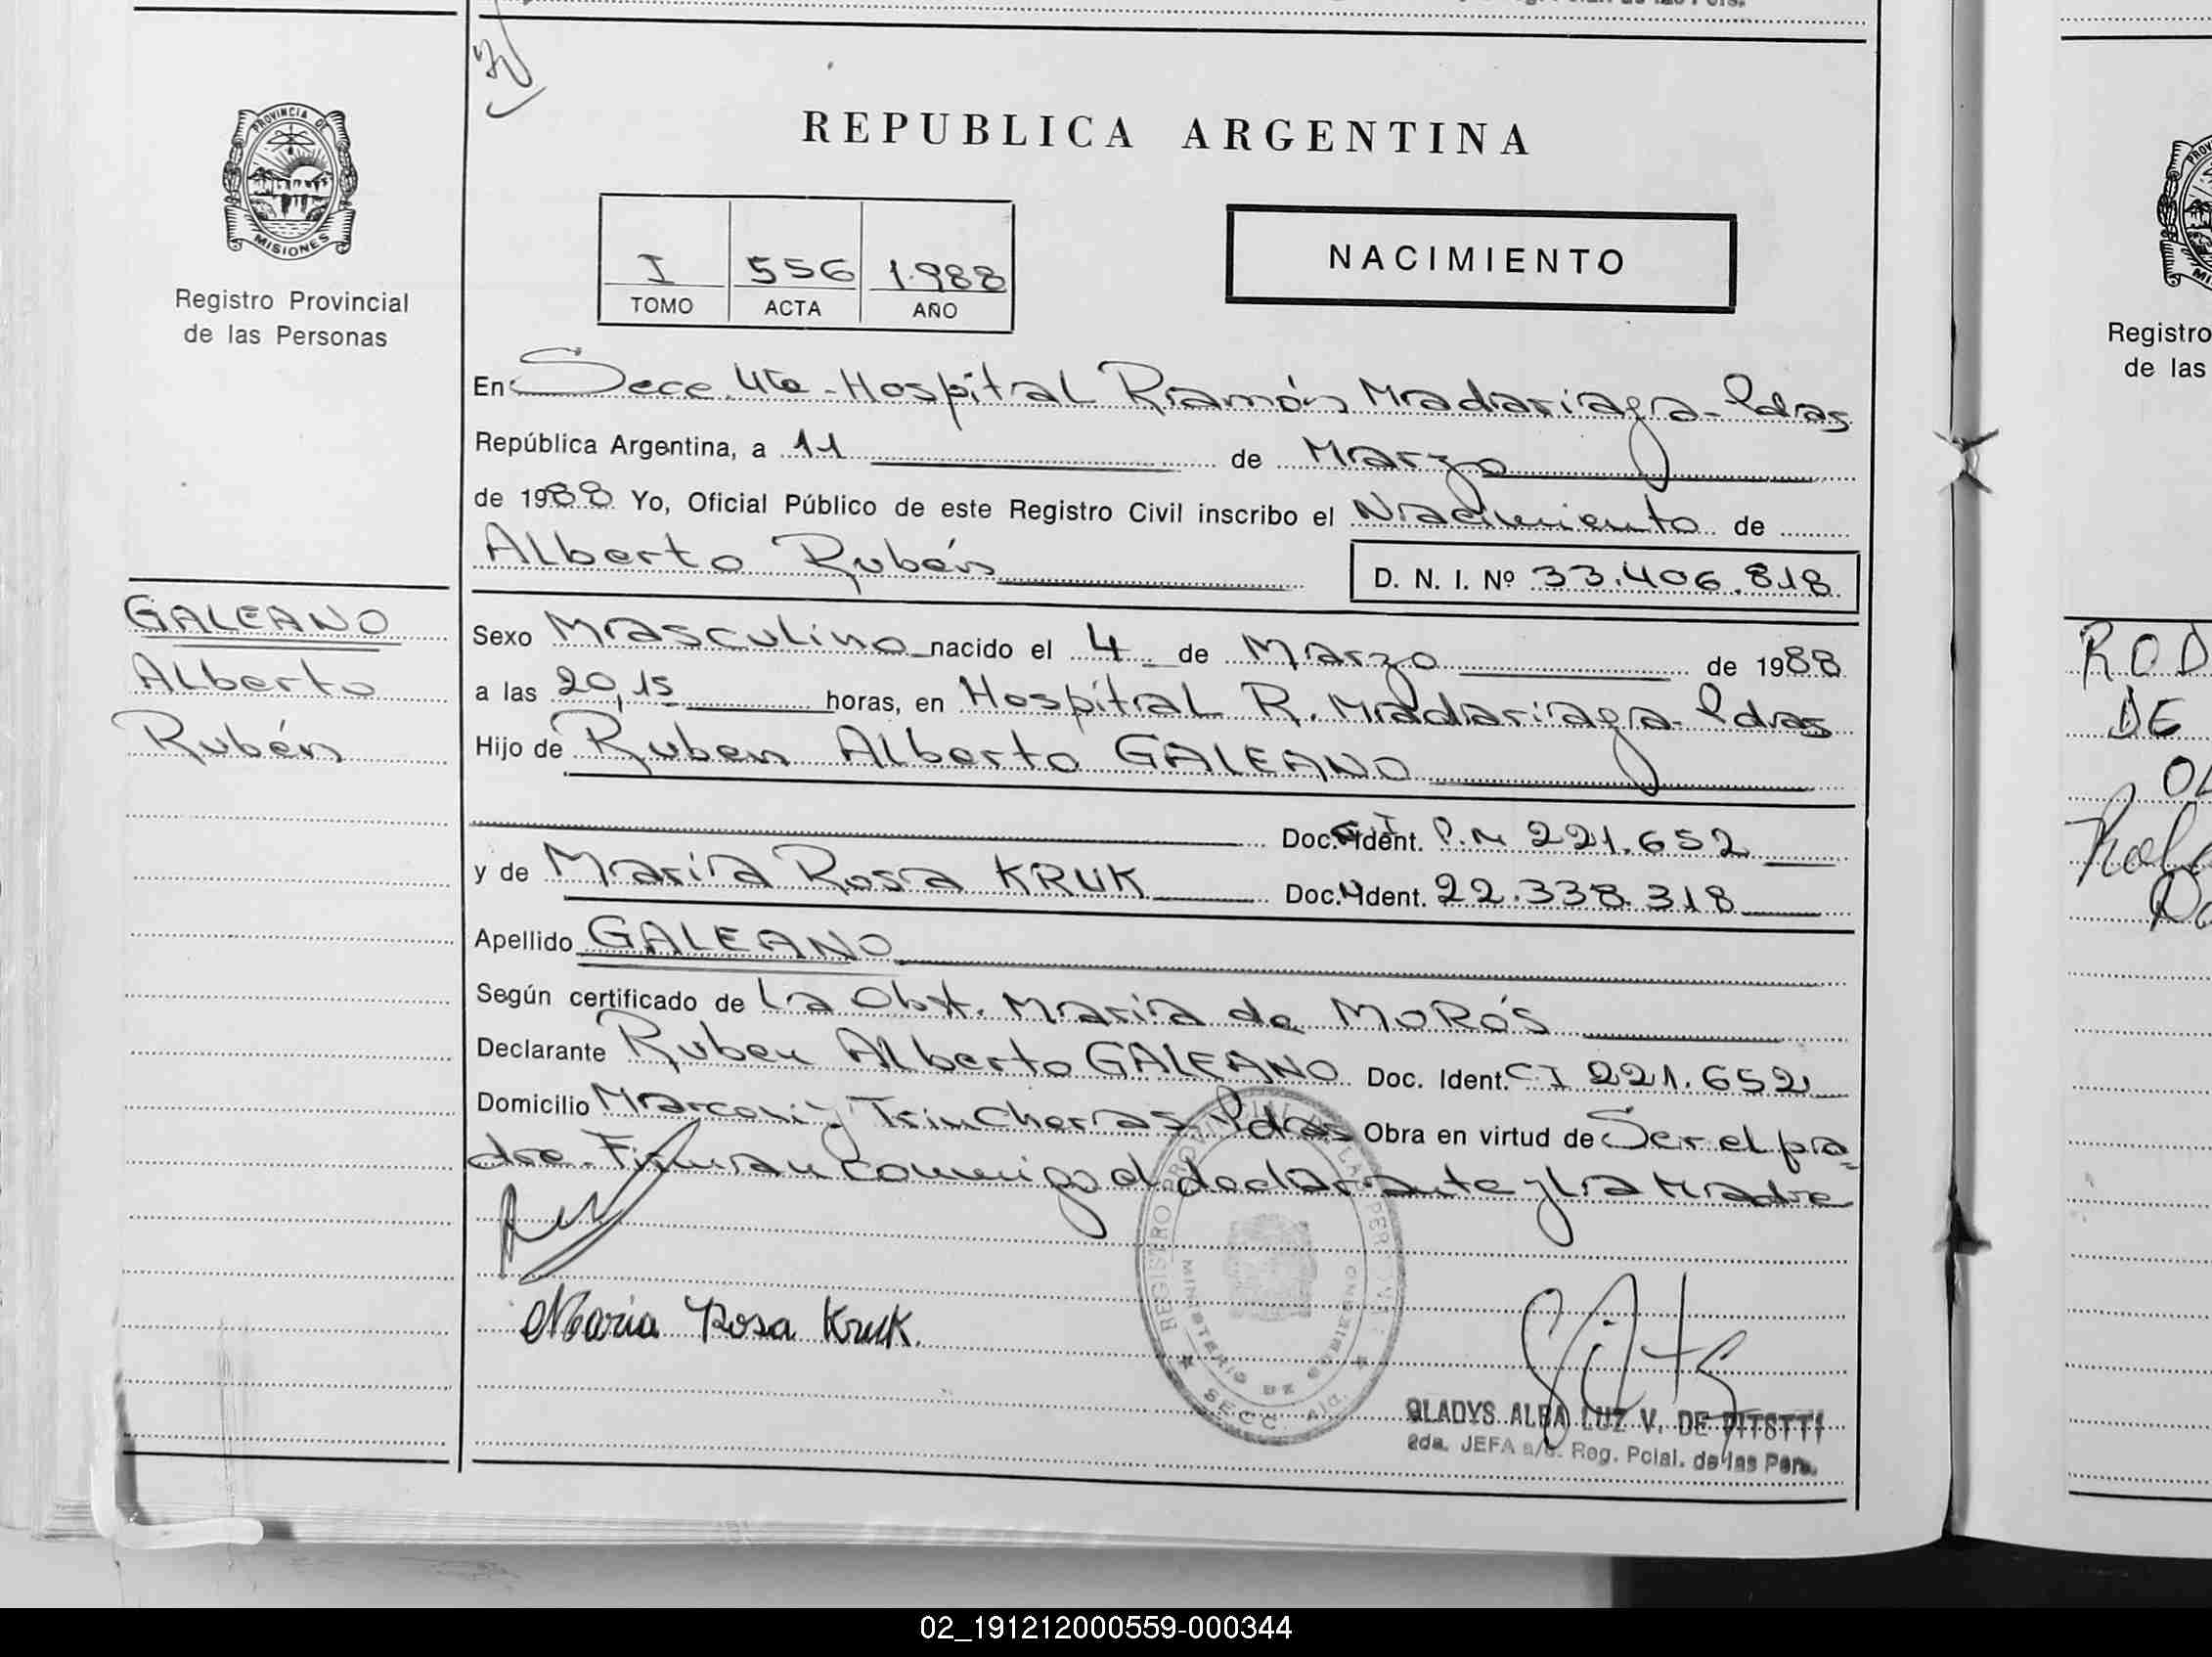 REPUBLICA ARGENTINA
PROVINCIA DE
MISIONES
Registro Provincial
de las Personas
I 556 1.988
TOMO ACTA AÑO
NACIMIENTO
En Secc. 4ta - Hospital Ramón Madariaga - Pdas
República Argentina, a 11 de Marzo
de 1988 Yo, Oficial Público de este Registro Civil inscribo el Nacimiento de
Alberto Rubén
D. N. I. Nº 33.406.818
GALEANO
Alberto
Rubén
Sexo Masculino nacido el 4 de Marzo de 1988
a las 20,15 horas, en Hospital R. Madariaga - Pdas
Hijo de Ruben Alberto GALEANO
Doc. Ident. P.M 221.652
y de María Rosa KRUK Doc. Ident. 22.338.318
Apellido GALEANO
Según certificado de La Obst. María de MORÓS
Declarante Ruben Alberto GALEANO Doc. Ident. CI 221.652
Domicilio Marconi y Trincheras Pdas Obra en virtud de Ser el pa-
dre. Firman conmigo el declarante y La Madre
María Rosa Kruk.
REGISTRO PROVINCIAL DE LAS PERSONAS
MINISTERIO DE GOBIERNO
SECC. 4ta.
GLADYS ALBA LUZ V. DE PITSTTI
2da. JEFA a/c. Reg. Pcial. de las Pers.
Registro
de las
ROD
DE
OL
02_191212000559-000344